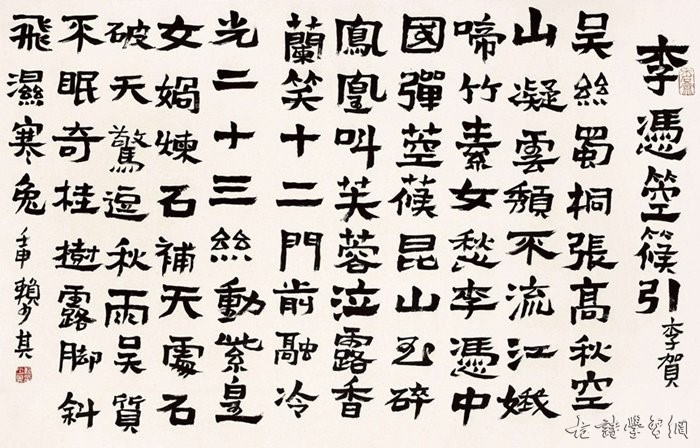 李憑箜篌引
李賀
吴絲蜀桐張高秋空
山凝雲頹不流江娥
啼竹素女愁李憑中
國彈箜篌昆山玉碎
鳳凰叫芙蓉泣露香
蘭笑十二門前融冷
光二十三絲動紫皇
女媧煉石補天處石
破天驚逗秋雨吴質
不眠奇桂樹露脚斜
飛濕寒兔
壬申 賴少其
古詩學習網